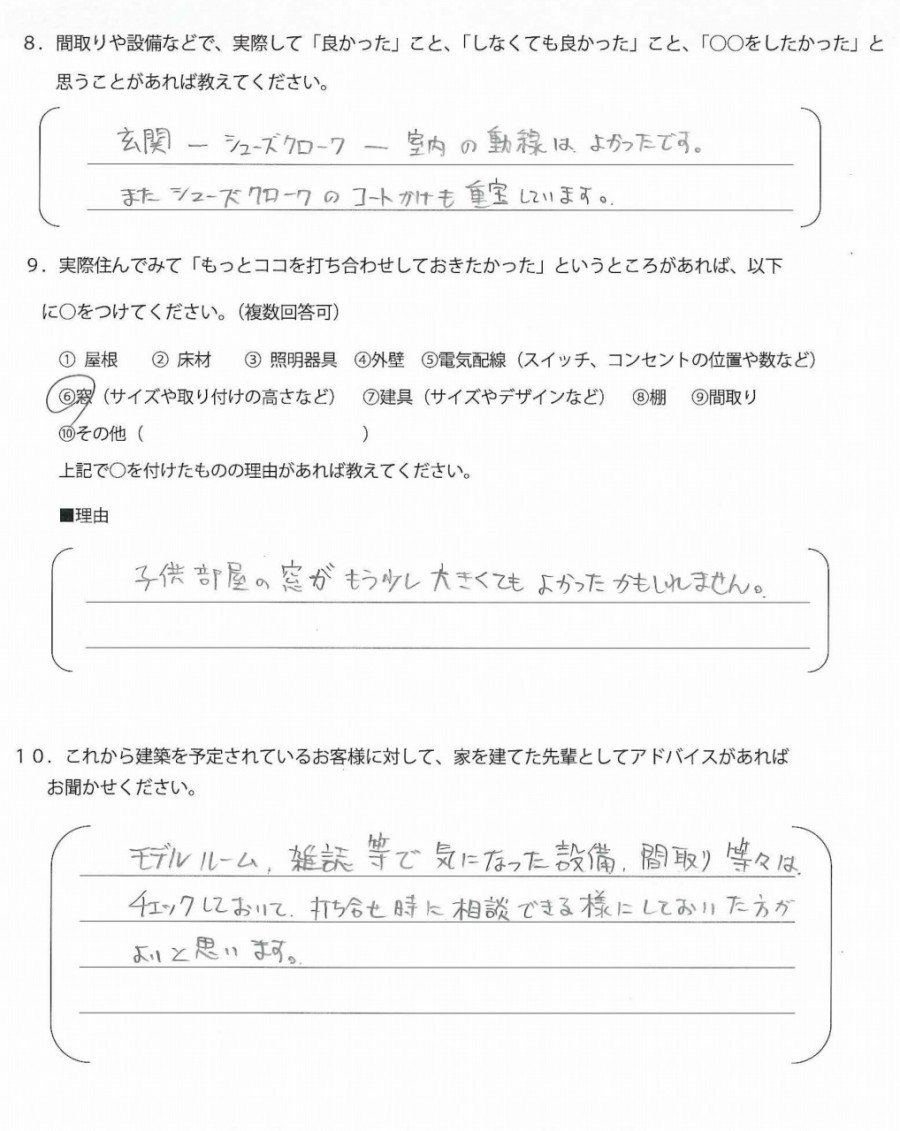 8．間取りや設備などで、実際して「良かった」こと、「しなくても良かった」こと、「〇〇をしたかった」と
思うことがあれば教えてください。
玄関 ー シューズクローク ー 室内の動線は よかったです。
また シューズクロークの コートかけも 重宝しています。
9．実際住んでみて「もっとココを打ち合わせしておきたかった」というところがあれば、以下
に〇をつけてください。（複数回答可）
① 屋根　② 床材　③ 照明器具　④外壁　⑤電気配線（スイッチ、コンセントの位置や数など）
⑥窓（サイズや取り付けの高さなど）　⑦建具（サイズやデザインなど）　⑧棚　⑨間取り
⑩その他（　　　　　　　　　　　　　）
上記で〇を付けたものの理由があれば教えてください。
■理由
子供部屋の窓が もう少し 大きくても よかったかもしれません。
１０．これから建築を予定されているお客様に対して、家を建てた先輩としてアドバイスがあれば
お聞かせください。
モデルルーム，雑誌等で 気になった設備，間取り等々は，
チェックしておいて、打ち合せ時に相談できる様にしておいた方が
よいと思います。